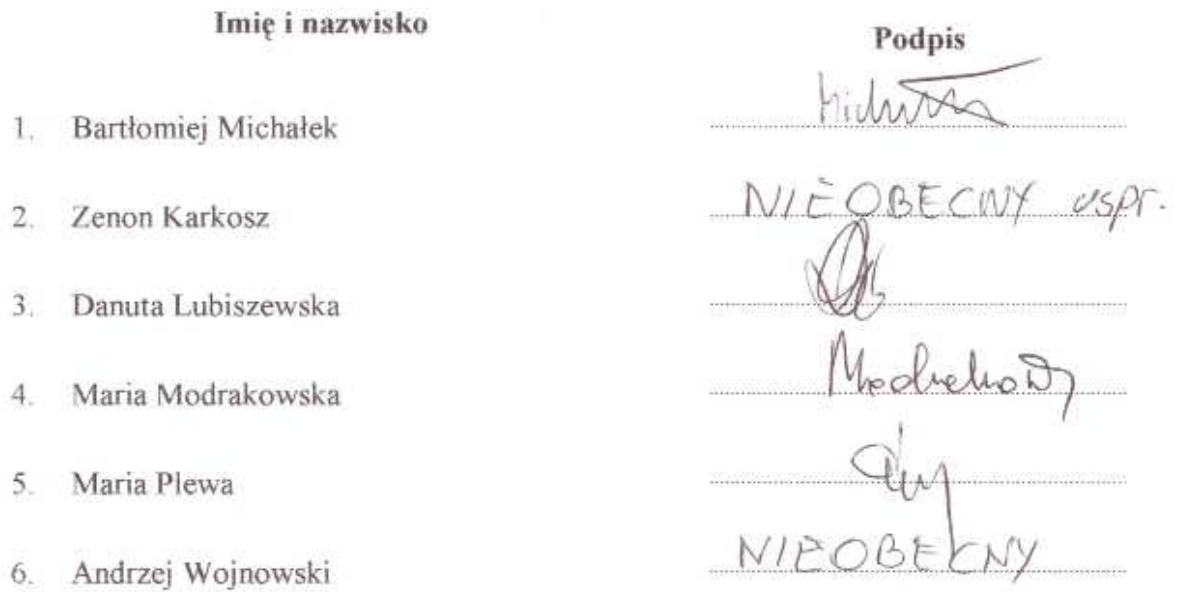 Imię i nazwisko Podpis
1. Bartłomiej Michałek
2. Zenon Karkosz NIEOBECNY uspr.
3. Danuta Lubiszewska
4. Maria Modrakowska
5. Maria Plewa
6. Andrzej Wojnowski NIEOBECNY